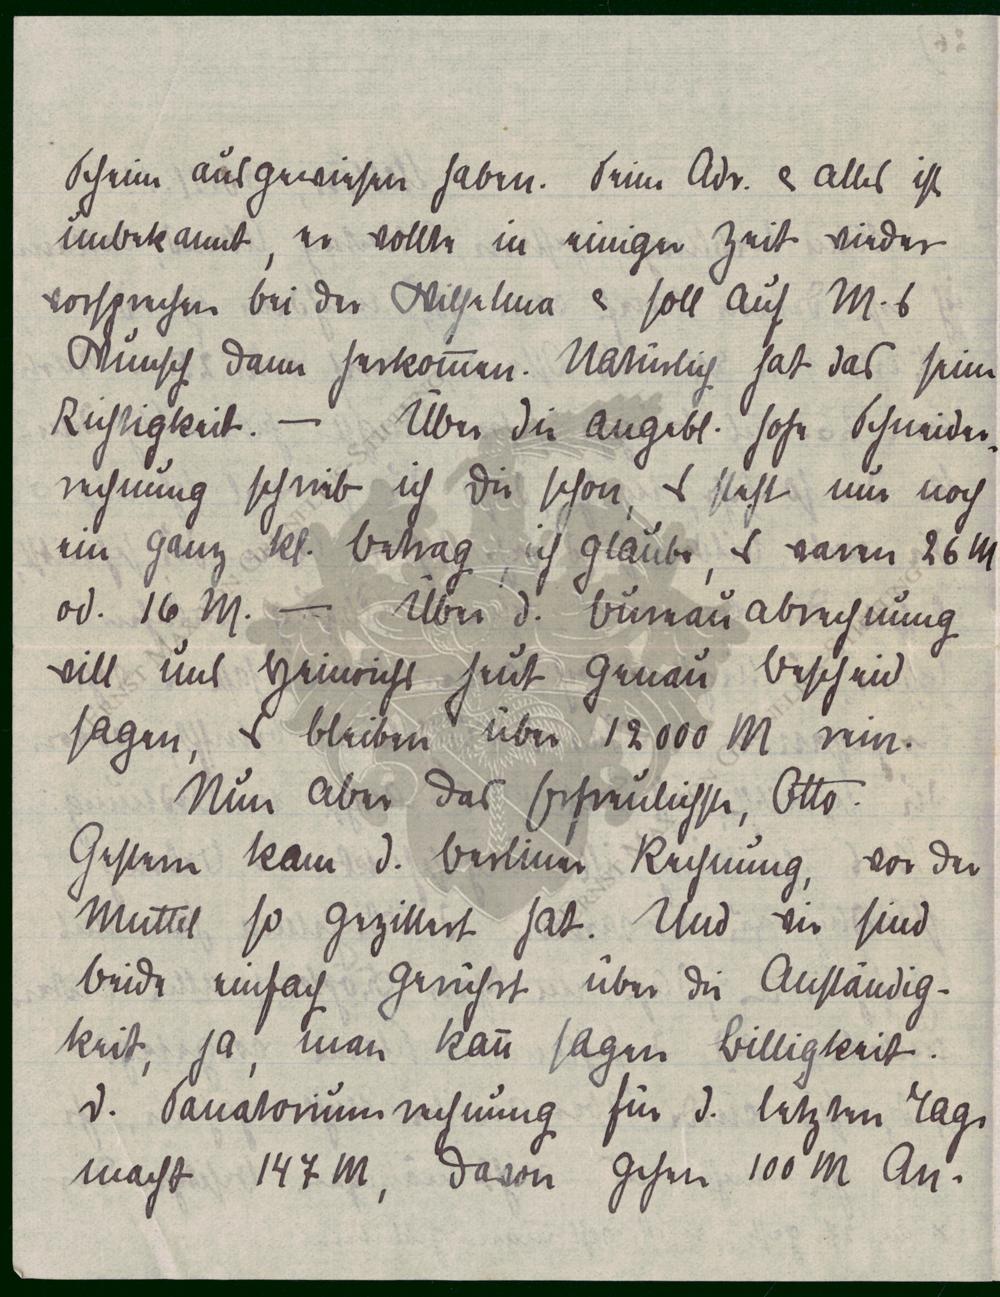 Schein ausgewiesen haben. Seine Adr. & alles ist
unbekannt, er wollte in einiger Zeit wieder
vorsprechen bei der Wilhelma & soll auf M.s
Wunsch dann herkom̅en. Natürlich hat das seine
Richtigkeit. — Über die angebl. hohe Schneider-
rechnung schrieb ich Dir schon, es steht nur noch
ein ganz kl. Betrag, ich glaube, es waren 26 M
od. 16 M. — Über d. Bureauabrechnung
will uns Heinrichs heut genau Bescheid
sagen, es bleiben über 12000 M rein.
Nun aber das Erfreulichste, Otto.
Gestern kam d. Berliner Rechnung, vor der
Muttel so gezittert hat. Und wir sind
beide einfach gerührt über die Anständig-
keit, ja, man kan̅ sagen Billigkeit.
d. Sanatoriumsrechnung für d. letzten Tage
macht 147 M, davon gehen 100 M An-